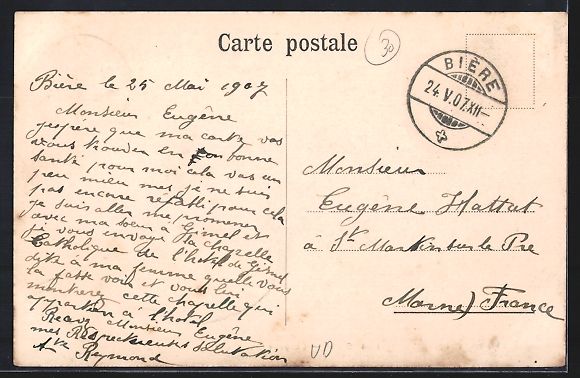 Carte postale
30
BIÈRE
24.V.07.XII—
Bière le 25 Mai 1907
Monsieur Eugène
j'espere que ma carte vas
vous trouver en bonne
santé pour moi cela vas un
peu mieu mes je ne suis
pas encore refait pour cela
je suis aller me promener
avec ma sœur à Gimel et
je vous envoye la chapelle
Catholique de l'hotel de Gimel
dite à ma femme quelle vous
la fasse voir et vous leur
montrere cette chapelle qui
appartien à l'hotel
Recever Monsieur Eugène
mes Respectueuses Salutation
Reymond
Monsieur
Eugène Hattat
à St Martin sur le Pré
Marne) France
VD